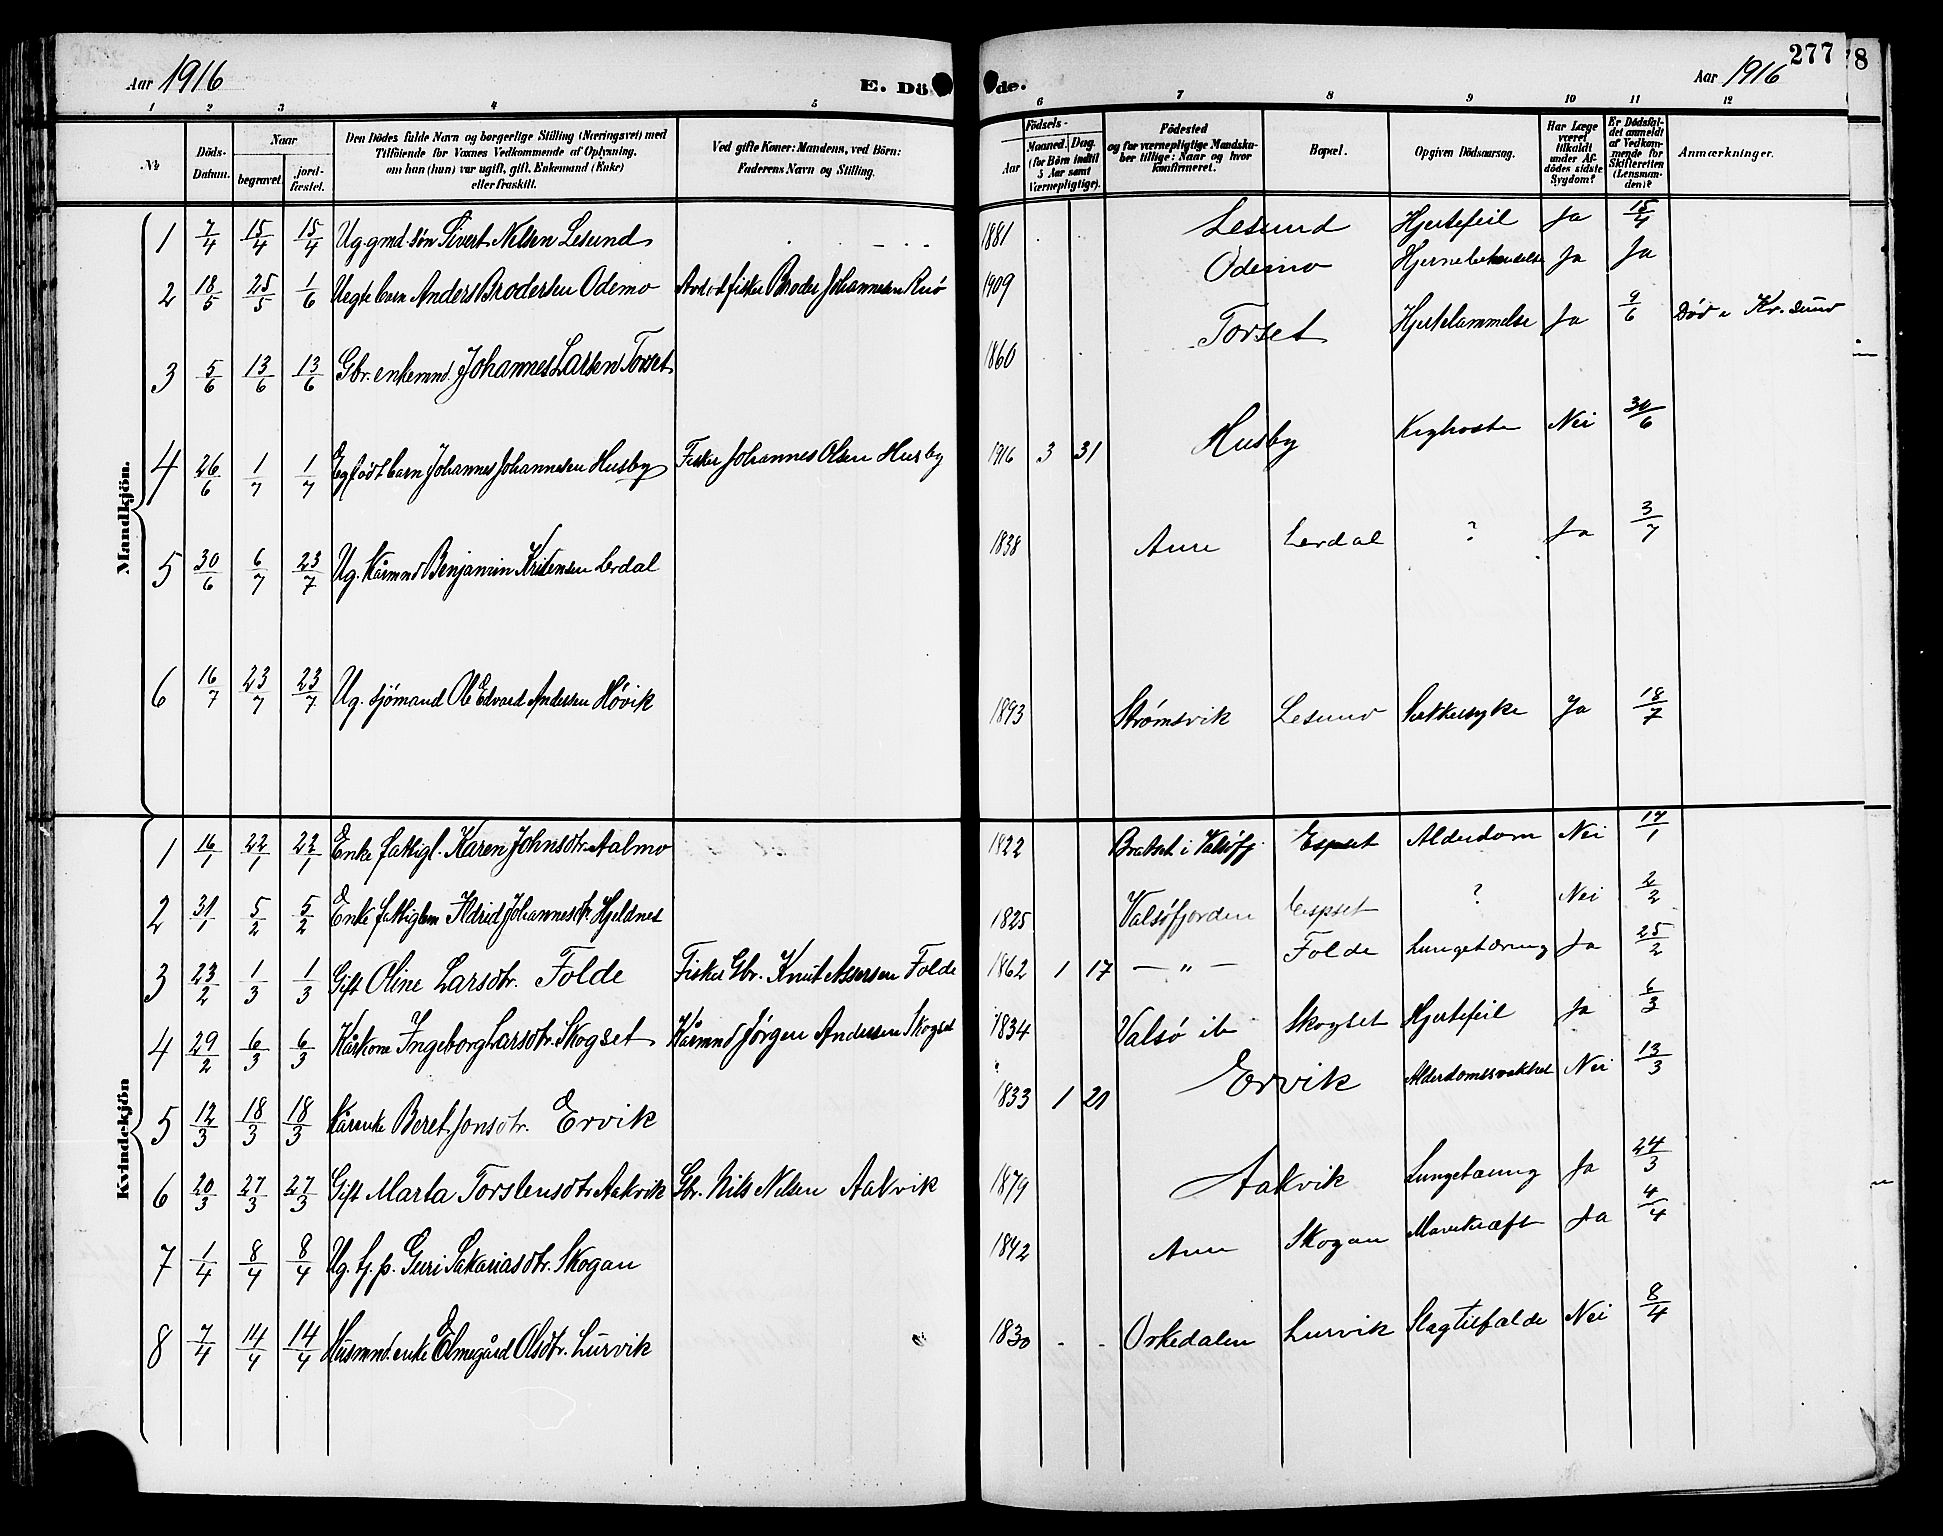 Aar 1916 E. Dö de. Aar 1916 277
8
1 2 3 4 5 6 7 8 9 10 11 12
№ Döds-Datum. Naar begravet. jord-fæstet. Den Dödes fulde Navn og borgerlige Stilling (Næringsvei) med Tilföiende for Voxnes Vedkommende af Oplysning, om han (hun) var ugift, gift, Enkemand (Enke) eller fraskilt. Ved gifte Koner: Mandens, ved Börn: Faderens Navn og Stilling. Födsels- Aar Maaned. Dag. (for Börn indtil 5 Aar samt Værnepligtige). Födested og for værnepligtige Mandskaber tillige: Naar og hvor konfirmeret. Bopæl. Opgiven Dödsaarsag. Har Læge været tilkaldt under Afdödes sidste Sygdom? Er Dödsfaldet anmeldt af Vedkommende for Skifteretten (Lensmanden)? Anmærkninger.
Mandkjön.
1 7/4 15/4 15/4 Ug. gmd. søn Sivert Nelsen Lesund 1881 Lesund Hjertefeil Ja 15/4
2 18/5 25/5 1/6 Uegte barn Anders Brodersen Odemo fisker Broder Johannesen Ruö 1909 Odemo Ja Ja
3 5/6 13/6 13/6 Gbr. enkemnd. Johannes Larsen Torset 1860 Torset Hjertelammelse Ja 9/6 Död i Kr.sund
4 26/6 1/7 1/7 Egfødt barn Johannes Johannesen Husby Fisker Johannes Olsen Husby 1916 3 31 Husby Kighoste Nei 30/6
5 30/6 6/7 23/7 Ug. Kårmnd Benjamin Kristensen Lerdal 1838 Aure Lerdal ? Ja 3/7
6 16/7 23/7 23/7 Ug. sjömand Ole Edvard Andersen Hövik 1893 Strømsvik Lesund Sukkersyke Ja 18/7
Kvindekjön
1 16/1 22/1 22/1 Enke fattigl. Karen Johnsdtr. Aalmo 1822 Bratset i Valsöfj. Espset Alderdom Nei 17/1
2 31/1 5/2 5/2 Enke fattiglem Ildrid Johannesdtr Hjeldnes 1825 Valsöfjorden Espset ? Nei 2/2
3 23/2 1/3 1/3 Gift Oline Larsdtr. Folde Fisker Gbr. Knut Assersen Folde 1862 1 17 — " — Folde Lungetæring Ja 25/2
4 29/2 6/3 6/3 Kårkone Ingeborg Larsdtr. Skogset Kårmnd Jörgen Andersen Skogset 1834 Valsö ib Skogset Hjertefeil Ja 6/3
5 12/3 18/3 18/3 Kårenke Beret Jonsdtr. Ervik 1833 1 21 Ervik Alderdomssvakhet Nei 13/3
6 20/3 27/3 27/3 Gift Marta Torstensdtr Aakvik Gbr. Nils Nelsen Aakvik 1879 Aakvik Lungetæring Ja 24/3
7 1/4 8/4 8/4 Ug. tj. p. Guri Sakariasdtr. Skogan 1842 Aure Skogan Mavekræft Ja 4/4
8 7/4 14/4 14/4 Husmnd. enke Elmegård Olsdtr. Lurvik 1830 Orkedalen Lurvik Slagtilfælde Nei 8/4